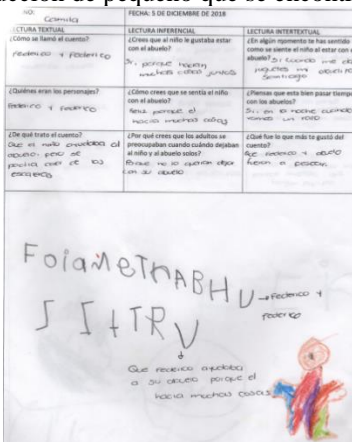 cción de pequeño que se encontr
NO: Camila
FECHA: 5 DE DICIEMBRE DE 2018
LECTURA TEXTUAL
LECTURA INFERENCIAL
LECTURA INTERTEXTUAL
¿Cómo se llamó el cuento?
Federico y Federico
¿Crees que al niño le gustaba estar
con el abuelo?
Si, porque hacen
muchas cosas juntos
¿En algún momento te has sentido
como se siente el niño al estar con
abuelo? Si cuando me da
juguetes mi abuelito
Santiago
¿Quiénes eran los personajes?
Federico y Federico
¿Cómo crees que se sentía el niño
con el abuelo?
feliz porque el
hacia muchas cosas
¿Piensas que esta bien pasar tiempo
con los abuelos?
Si, en la noche cuando
vamos un rato
¿De qué trato el cuento?
Que el niño ayudaba al
abuelo pero se
podia caer de las
escaleras
¿Por qué crees que los adultos se
preocupaban cuando cuándo dejaban
al niño y al abuelo solos?
Porque no lo querian dejar
con su abuelo
¿Qué fue lo que más te gustó del
cuento?
Que Federico y abuelo
fueron a pescar
FoiaMeTMABHU → Federico y
Federico
IItRU
Que Federico ayudaba
a su abuelo porque el
hacia muchas cosas